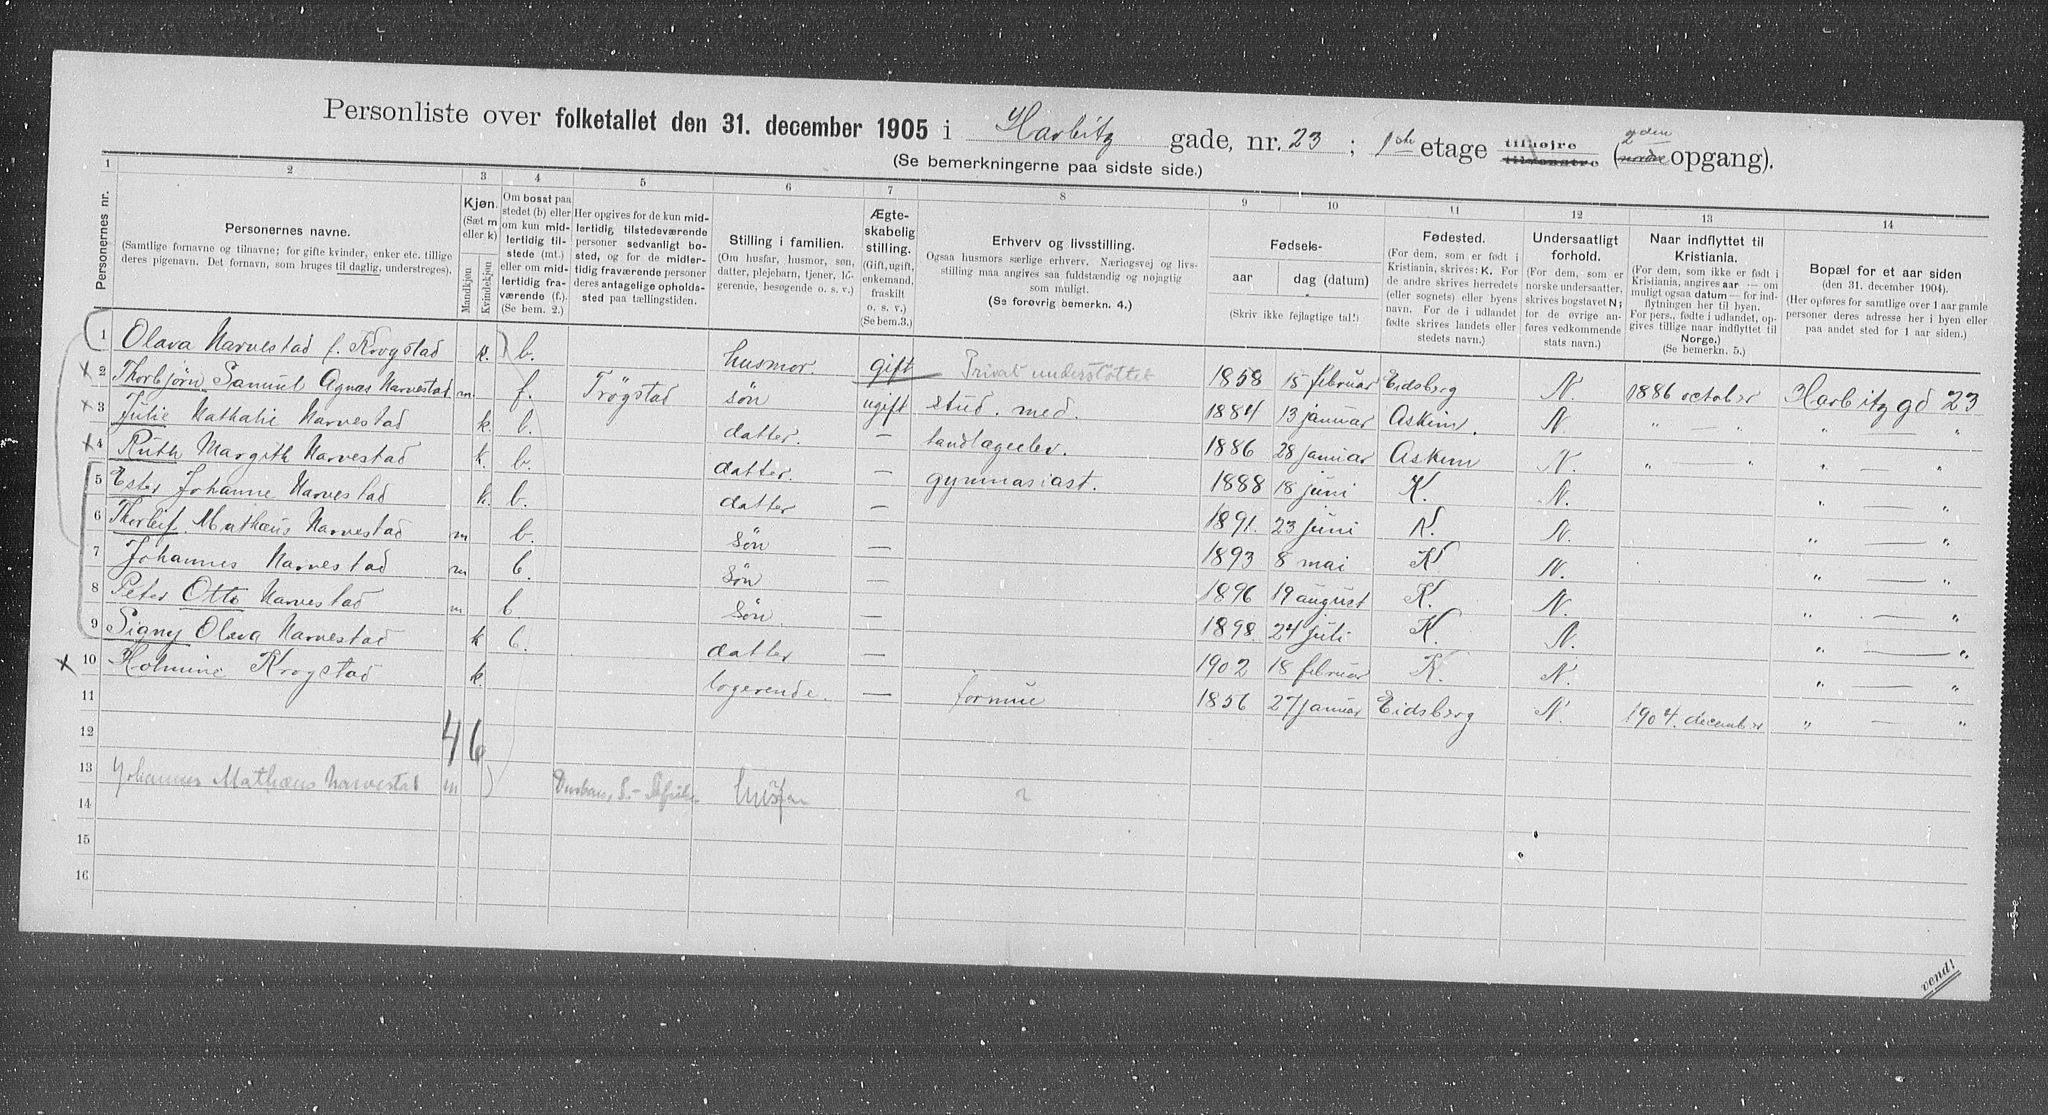 Personliste over folketallet den 31. december 1905 i Harbitz gade, nr. 23 ; 1ste etage tilhøjre tilvenstre (2den nordre opgang).
(Se bemerkningerne paa sidste side.)
1 2 3 4 5 6 7 8 9 10 11 12 13 14
Personernes nr.
Personernes navne.
(Samtlige fornavne og tilnavne; for gifte kvinder, enker etc. tillige deres pigenavn. Det fornavn, som bruges til daglig, understreges).
Kjøn.
(Sæt m eller k)
Mandkjøn
Kvindekjøn
Om bosat paa stedet (b) eller om kun midlertidig tilstede (mt.) eller om midlertidig fraværende (f.). (Se bem. 2.)
Her opgives for de kun midlertidig tilstedeværende personer sedvanligt bosted, og for de midlertidig fraværende personer deres antagelige opholdssted paa tællingstiden.
Stilling i familien.
(Om husfar, husmor, søn, datter, plejebarn, tjener, logerende, besøgende o. s. v.)
Ægteskabelig stilling.
(Gift, ugift, enkemand, fraskilt o. s. v.)
(Se bem. 3.)
Erhverv og livsstilling.
Ogsaa husmors særlige erhverv. Næringsvej og livsstilling maa angives saa fuldstændig og nøjagtig som muligt.
(Se forøvrig bemerkn. 4.)
Fødsels-
aar
dag (datum)
(Skriv ikke fejlagtige tal!)
Fødested.
(For dem, som er født i Kristiania, skrives: K. For de andre skrives herredets (eller sognets) eller byens navn. For de i udlandet fødte skrives landets eller stedets navn.)
Undersaatligt forhold.
(For dem, som er norske undersaatter, skrives bogstavet N; for de øvrige anføres vedkommende stats navn.)
Naar indflyttet til Kristiania.
(For dem, som ikke er født i Kristiania, angives aar — om muligt ogsaa datum — for indflytningen her til byen. For pers., fødte i udlandet, opgives tillige naar indflyttet til Norge.)
(Se bemerkn. 5.)
Bopæl for et aar siden
(den 31. december 1904.)
(Her opføres for samtlige over 1 aar gamle personer deres adresse her i byen eller paa andet sted for 1 aar siden.)
1 Olava Narvestad f. Krogstad k. b. husmor. gift Privat understøttet 1858 15 februar Eidsberg N. 1886 october Harbitzgd 23
x 2 Thorbjørn Samuel Agnas Narvestad m. f. Trøgstad søn ugift stud. med. 1884 13 januar Askim. N. " — " " — "
x 3 Julie Nathalie Narvestad k. b. datter. — landtageelev. 1886 28 januar Askim N. " — " " — "
x 4 Ruth Margith Narvestad k. b. datter. — gymnasiast. 1888 18 juni K. N. " — "
5 Ester Johanne Narvestad k. b. datter — 1891. 23 juni K. N. " — "
6 Thorleif Mathæus Narvestad m b. søn — 1893 8 mai K N. " — "
7 Johannes Narvestad m b. søn — 1896 19 august K. N. " — "
8 Peter Otto Narvestad m b søn. — 1898. 24 juli K N. " — "
9 Signy Olava Narvestad k b. datter — 1902 18 februar K. N. " — "
x 10 Holmine Krogstad k. logerende. — formue 1856 27 januar Eidsberg N. 1904. december " — "
11
12 4 6
13 Johannes Mathæus Narvestad m Durban, S.-Afrika husfar ?
14
15
16
vend!